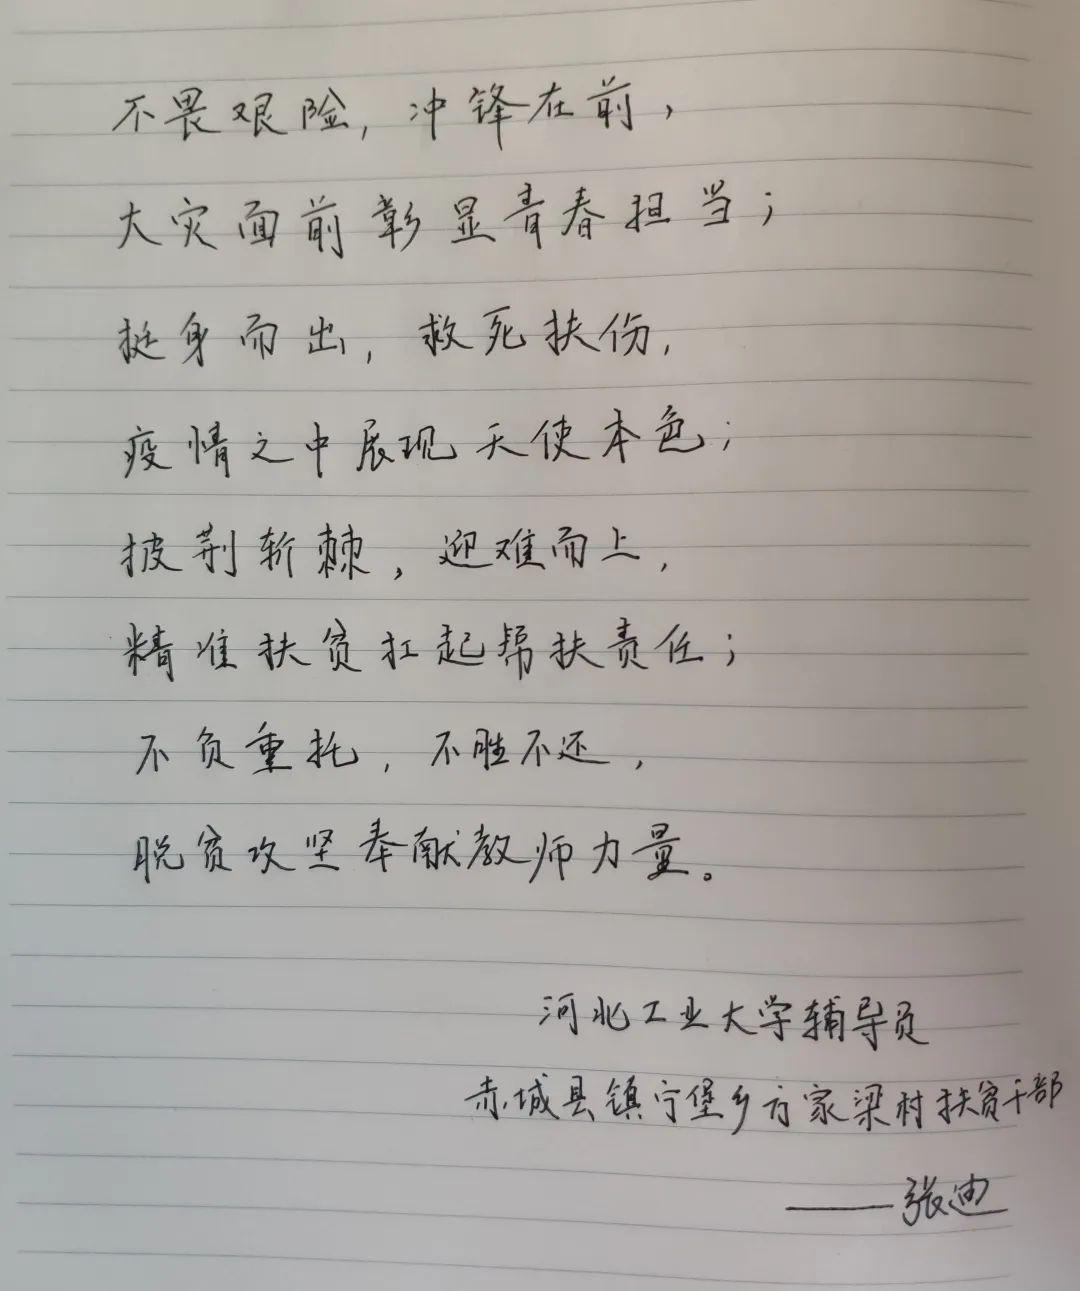 不畏艰险,冲锋在前,
大灾面前彰显青春担当;
挺身而出,救死扶伤,
疫情之中展现天使本色;
披荆斩棘,迎难而上,
精准扶贫扛起帮扶责任;
不负重托,不胜不还,
脱贫攻坚奉献教师力量。
河北工业大学辅导员
赤城县镇宁堡乡方家梁村扶贫干部
——张迪